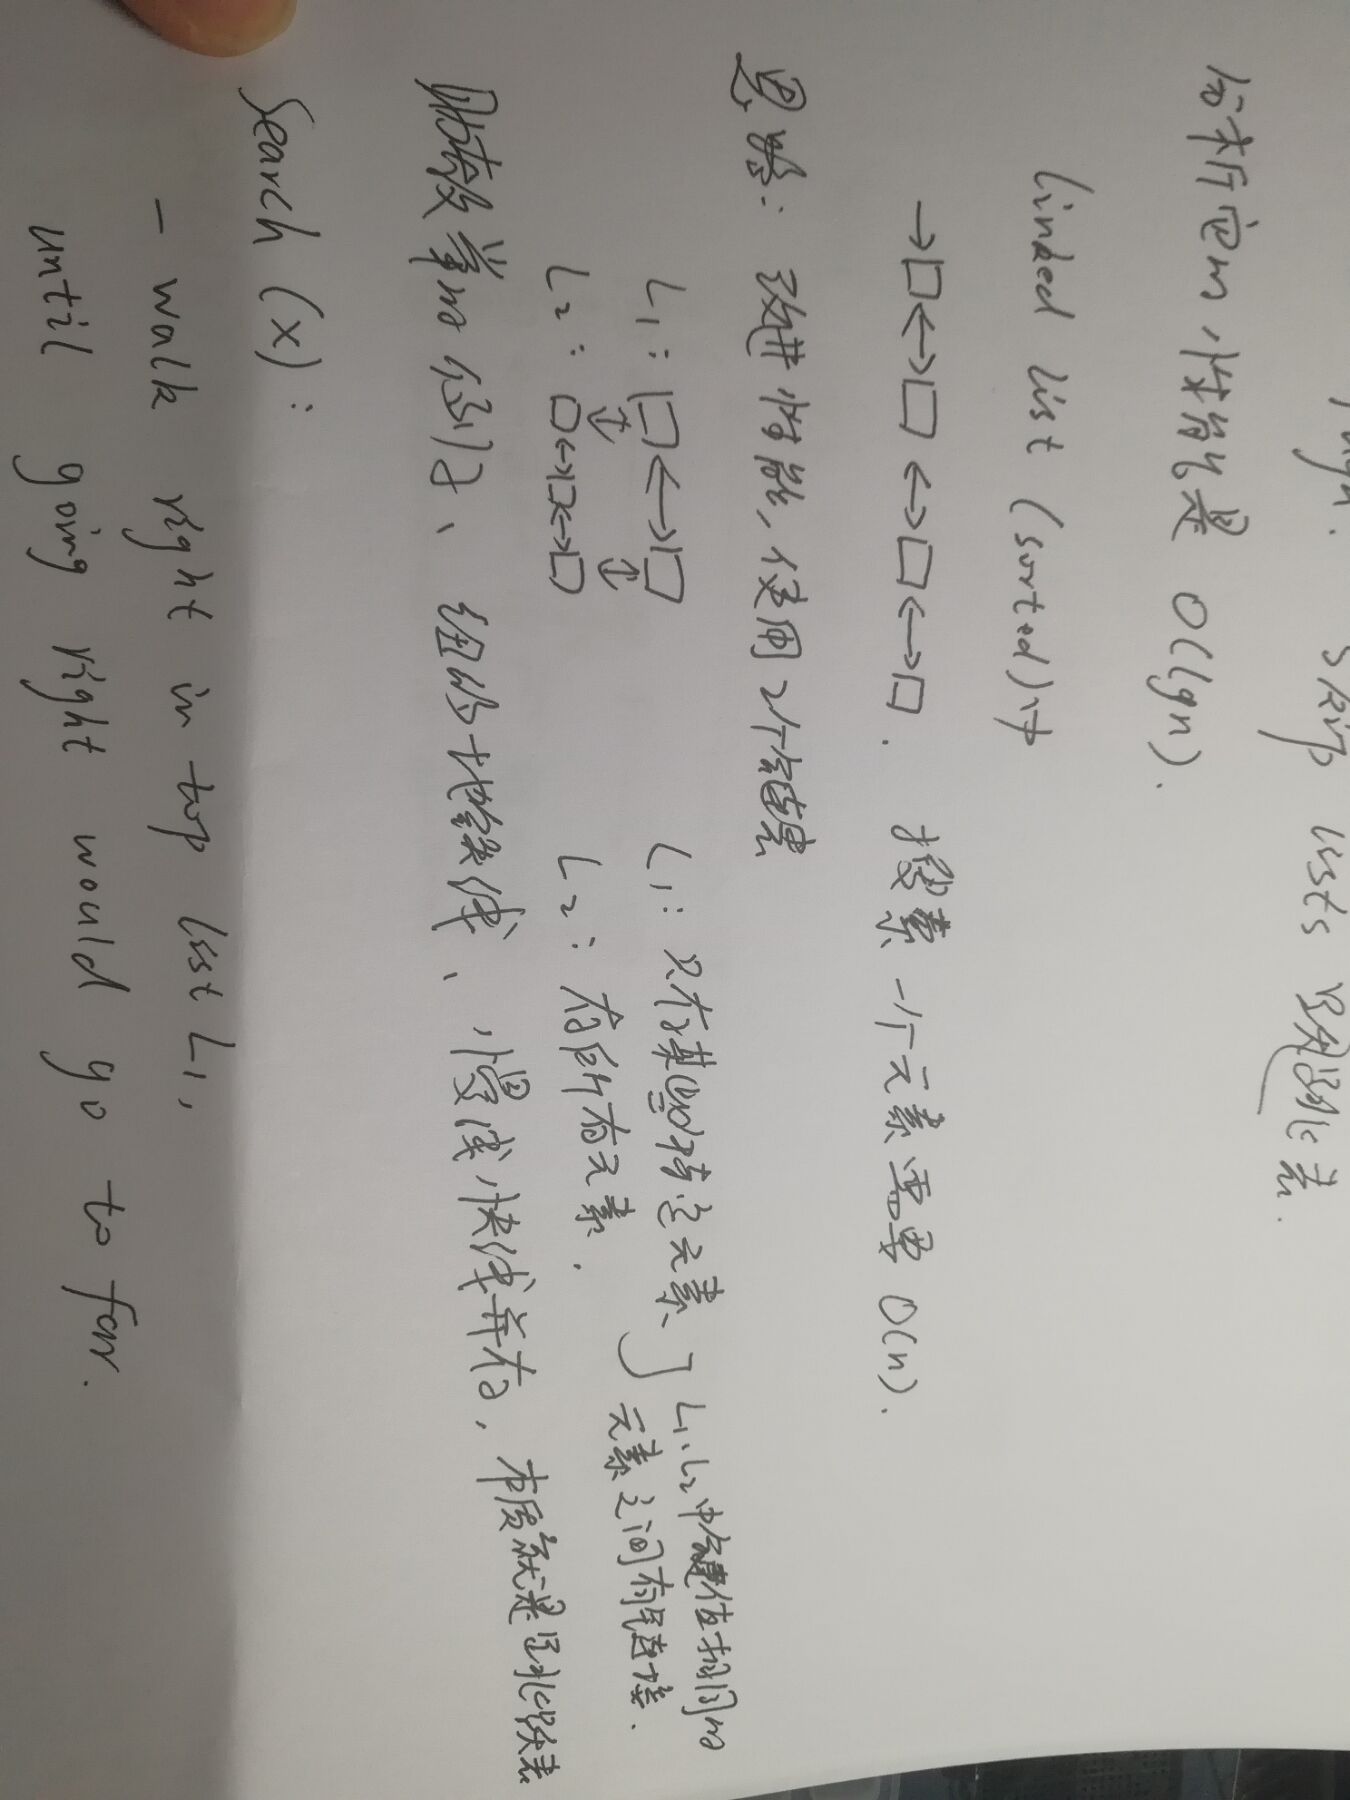 Skip lists 跳跃表.
分析它的性能是 O(lgn).
linked list (sorted)中
搜索一个元素需要 O(n).
思路: 改进性能, 使用2个链表
L1:
L2:
L1: 只存某(些)特定元素
L2: 存所有元素.
L1、L2中键值相同的
元素之间有链连接.
助教举的例子、纽约地铁线、慢线快线并存, 本质就是跳跃表
Search (x):
- walk right in top list L1,
until going right would go to far.